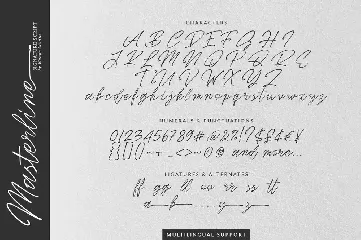 Masterline
SIGNATURE SCRIPT
CHARACTERS
A B C D E F G H I
J K L M N O P Q R S
T U V W X Y Z
a b c d e f g h i j k l m n o p q r s t u v w x y z
NUMERALS & PUNCTUATIONS
0123456789#@2%!?$&£€¥
and more...
LIGATURES & ALTERNATES
ff gg ll oo rr ss tt
a b ..... y z
MULTILINGUAL SUPPORT